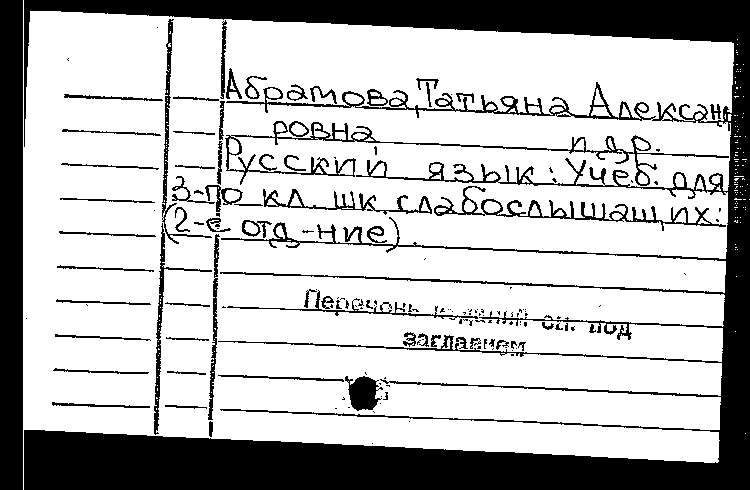 Абрамова, Татьяна Александ
ровна, и др.
Русский язык: Учеб. для
3-го кл. шк. слабослышащих:
(2-е отд-ние).
Перечень изданий см. под
заглавием